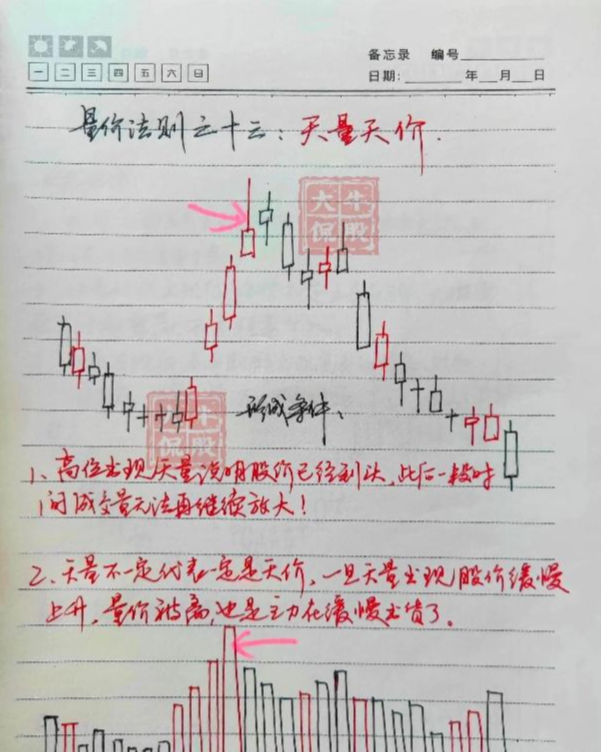 备忘录 编号
一 二 三 四 五 六 日
日期: 年 月 日
量价法则之十三：天量天价.
大牛
侃股
大牛
侃股
形成条件：
1、高位出现天量说明股价已经到头，此后一段时
间成交量无法再继续放大！
2、天量不一定代表一定是天价，一旦天量出现股价缓慢
上升，量价新高，也是主力在缓慢出货了。